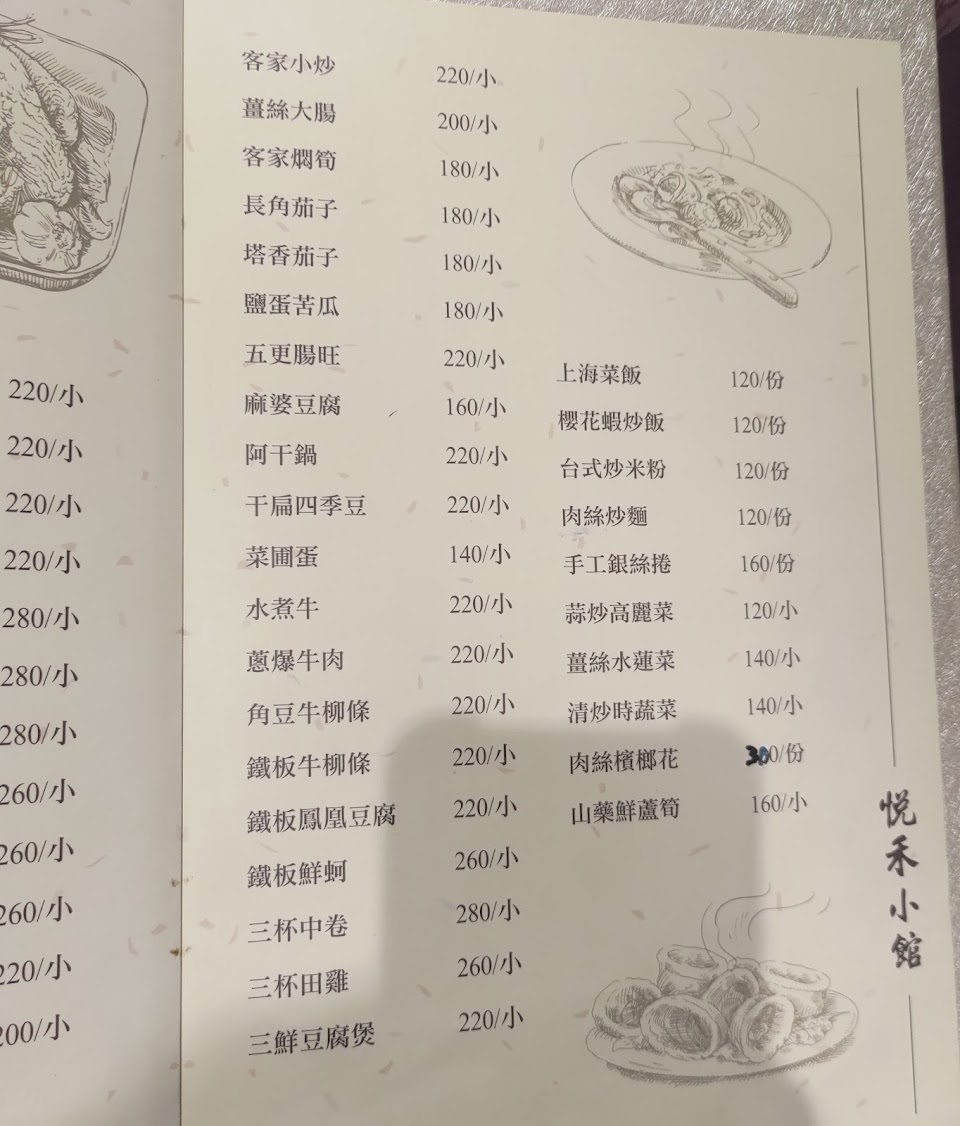 220/小
220/小
220/小
220/小
280/小
280/小
280/小
260/小
260/小
260/小
220/小
200/小
客家小炒 220/小
薑絲大腸 200/小
客家燜筍 180/小
長角茄子 180/小
塔香茄子 180/小
鹽蛋苦瓜 180/小
五更腸旺 220/小
麻婆豆腐 160/小
阿干鍋 220/小
干扁四季豆 220/小
菜圃蛋 140/小
水煮牛 220/小
蔥爆牛肉 220/小
角豆牛柳條 220/小
鐵板牛柳條 220/小
鐵板鳳凰豆腐 220/小
鐵板鮮蚵 260/小
三杯中卷 280/小
三杯田雞 260/小
三鮮豆腐煲 220/小
上海菜飯 120/份
櫻花蝦炒飯 120/份
台式炒米粉 120/份
肉絲炒麵 120/份
手工銀絲捲 160/份
蒜炒高麗菜 120/小
薑絲水蓮菜 140/小
清炒時蔬菜 140/小
肉絲檳榔花 300/份
山藥鮮蘆筍 160/小
悅禾小館